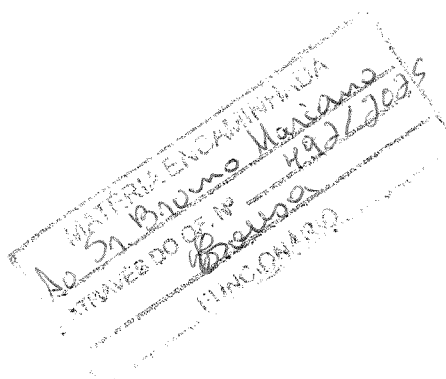 MATÉRIA ENCAMINHADA
Ao Sr. Bruno Mariano
ATRAVÉS DO OF. Nº 492/2025
FUNCIONÁRIO